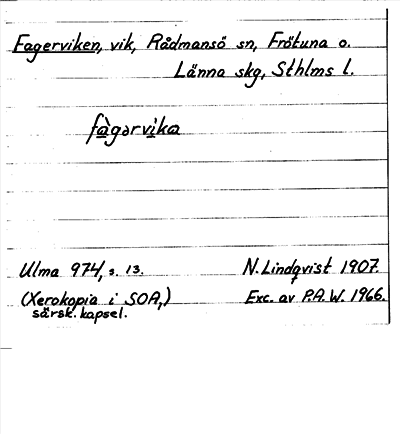 Fagerviken, vik, Rådmansö sn, Frötuna o.
Länna skg, Sthlms l.
fàgərvika
Ulma 974, s. 13. N. Lindqvist 1907.
(Xerokopia i SOA,) Exc. av P.A.W. 1966.
särsk. kapsel.